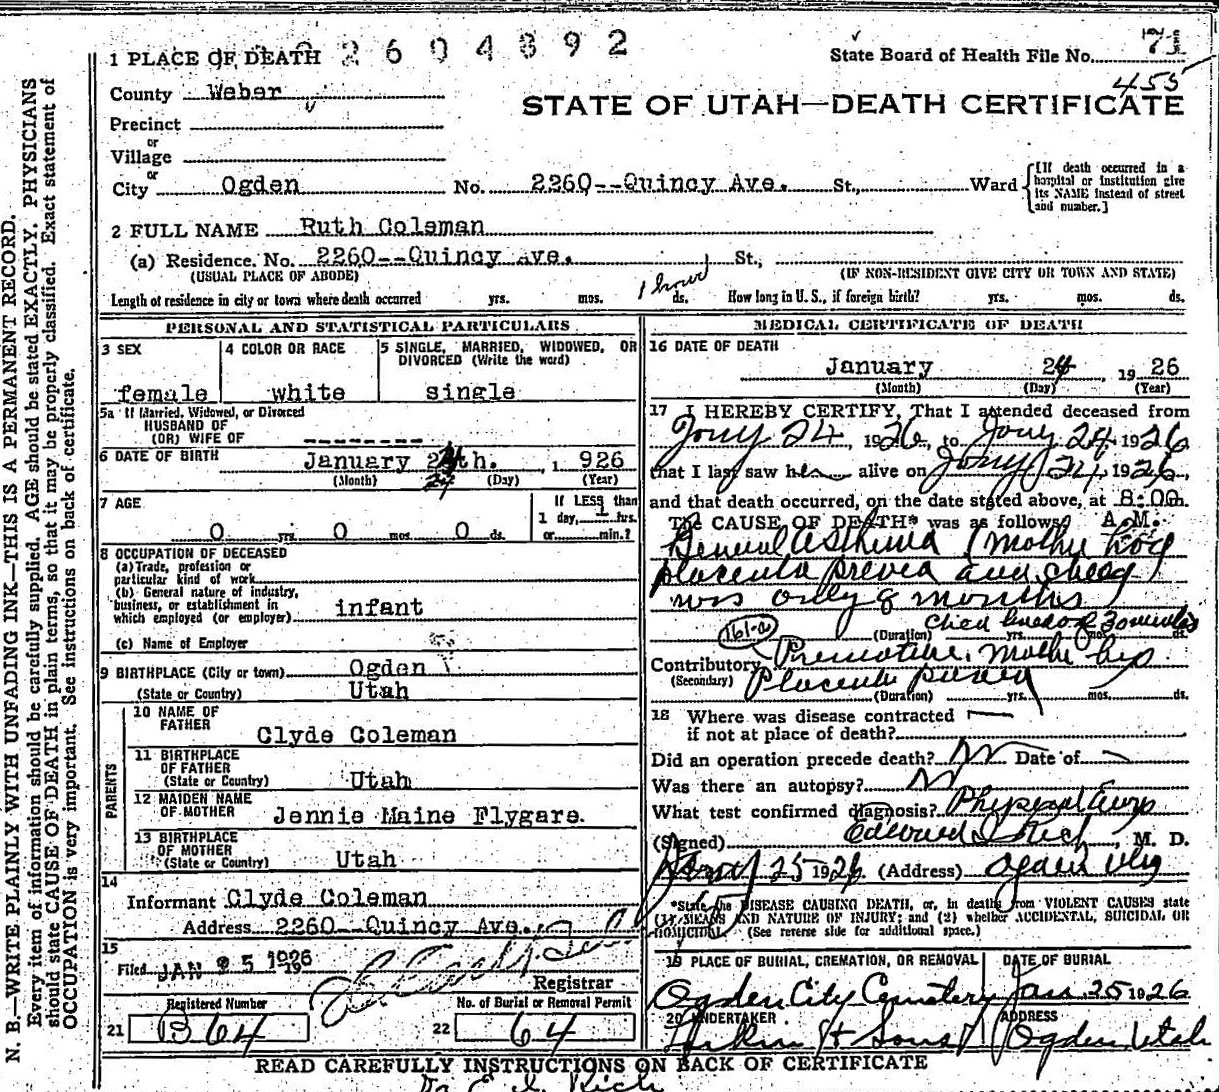 1 PLACE OF DEATH 2604392
State Board of Health File No. 71
455
County Weber
STATE OF UTAH—DEATH CERTIFICATE
Precinct
or
Village
or
City Ogden No. 2260--Quincy Ave. St., Ward
[If death occurred in a hospital or institution give its NAME instead of street and number.]
2 FULL NAME Ruth Coleman
(a) Residence. No. 2260--Quincy Ave. St.,
(USUAL PLACE OF ABODE) (IF NON-RESIDENT GIVE CITY OR TOWN AND STATE)
Length of residence in city or town where death occurred yrs. mos. 1 hour ds. How long in U. S., if foreign birth? yrs. mos. ds.
PERSONAL AND STATISTICAL PARTICULARS
3 SEX
female
4 COLOR OR RACE
white
5 SINGLE, MARRIED, WIDOWED, OR DIVORCED (Write the word)
single
5a If Married, Widowed, or Divorced
HUSBAND OF
(OR) WIFE OF --------
6 DATE OF BIRTH January 24th. 1 926
24
(Month) (Day) (Year)
7 AGE
0 yrs. 0 mos. 0 ds.
If LESS than
1 day, 1 hrs.
or min.?
8 OCCUPATION OF DECEASED
(a) Trade, profession or
particular kind of work
(b) General nature of industry,
business, or establishment in
which employed (or employer) infant
(c) Name of Employer
9 BIRTHPLACE (City or town) Ogden
(State or Country) Utah
PARENTS
10 NAME OF
FATHER Clyde Coleman
11 BIRTHPLACE
OF FATHER
(State or Country) Utah
12 MAIDEN NAME
OF MOTHER Jennie Maine Flygare.
13 BIRTHPLACE
OF MOTHER
(State or Country) Utah
14
Informant Clyde Coleman
Address 2260--Quincy Ave.
15
Filed JAN 25 1926
Registrar
Registered Number
21 B 64
No. of Burial or Removal Permit
22 64
MEDICAL CERTIFICATE OF DEATH
16 DATE OF DEATH
January 24, 19 26
(Month) (Day) (Year)
17 I HEREBY CERTIFY, That I attended deceased from
Jany 24, 1926, to Jany 24 1926
that I last saw her alive on Jany 24, 1926,
and that death occurred, on the date stated above, at 8:00m.
A.M.
The CAUSE OF DEATH* was as follows:
General Asthenia (mother had
placenta previa and child
was only 8 months
child lived 30 minutes
161-a
(Duration) yrs. mos. ds.
Contributory Premature. Mother had
(Secondary) Placenta previa
(Duration) yrs. mos. ds.
18 Where was disease contracted
if not at place of death?
Did an operation precede death? No Date of
Was there an autopsy? No
What test confirmed diagnosis? Physical Exam
(Signed) Edward I Rich, M. D.
Jany 25 1926 (Address) Ogden Utah
*State the DISEASE CAUSING DEATH, or, in deaths from VIOLENT CAUSES state
(1) MEANS AND NATURE OF INJURY; and (2) whether ACCIDENTAL, SUICIDAL OR
HOMICIDAL. (See reverse side for additional space.)
19 PLACE OF BURIAL, CREMATION, OR REMOVAL
Ogden City Cemetery
DATE OF BURIAL
Jan. 25 1926
20 UNDERTAKER
Larkin & Sons
ADDRESS
Ogden Utah
READ CAREFULLY INSTRUCTIONS ON BACK OF CERTIFICATE
Dr E. I. Rich
N. B.—WRITE PLAINLY WITH UNFADING INK—THIS IS A PERMANENT RECORD.
Every item of information should be carefully supplied. AGE should be stated EXACTLY. PHYSICIANS
should state CAUSE OF DEATH in plain terms, so that it may be properly classified. Exact statement of
OCCUPATION is very important. See instructions on back of certificate.